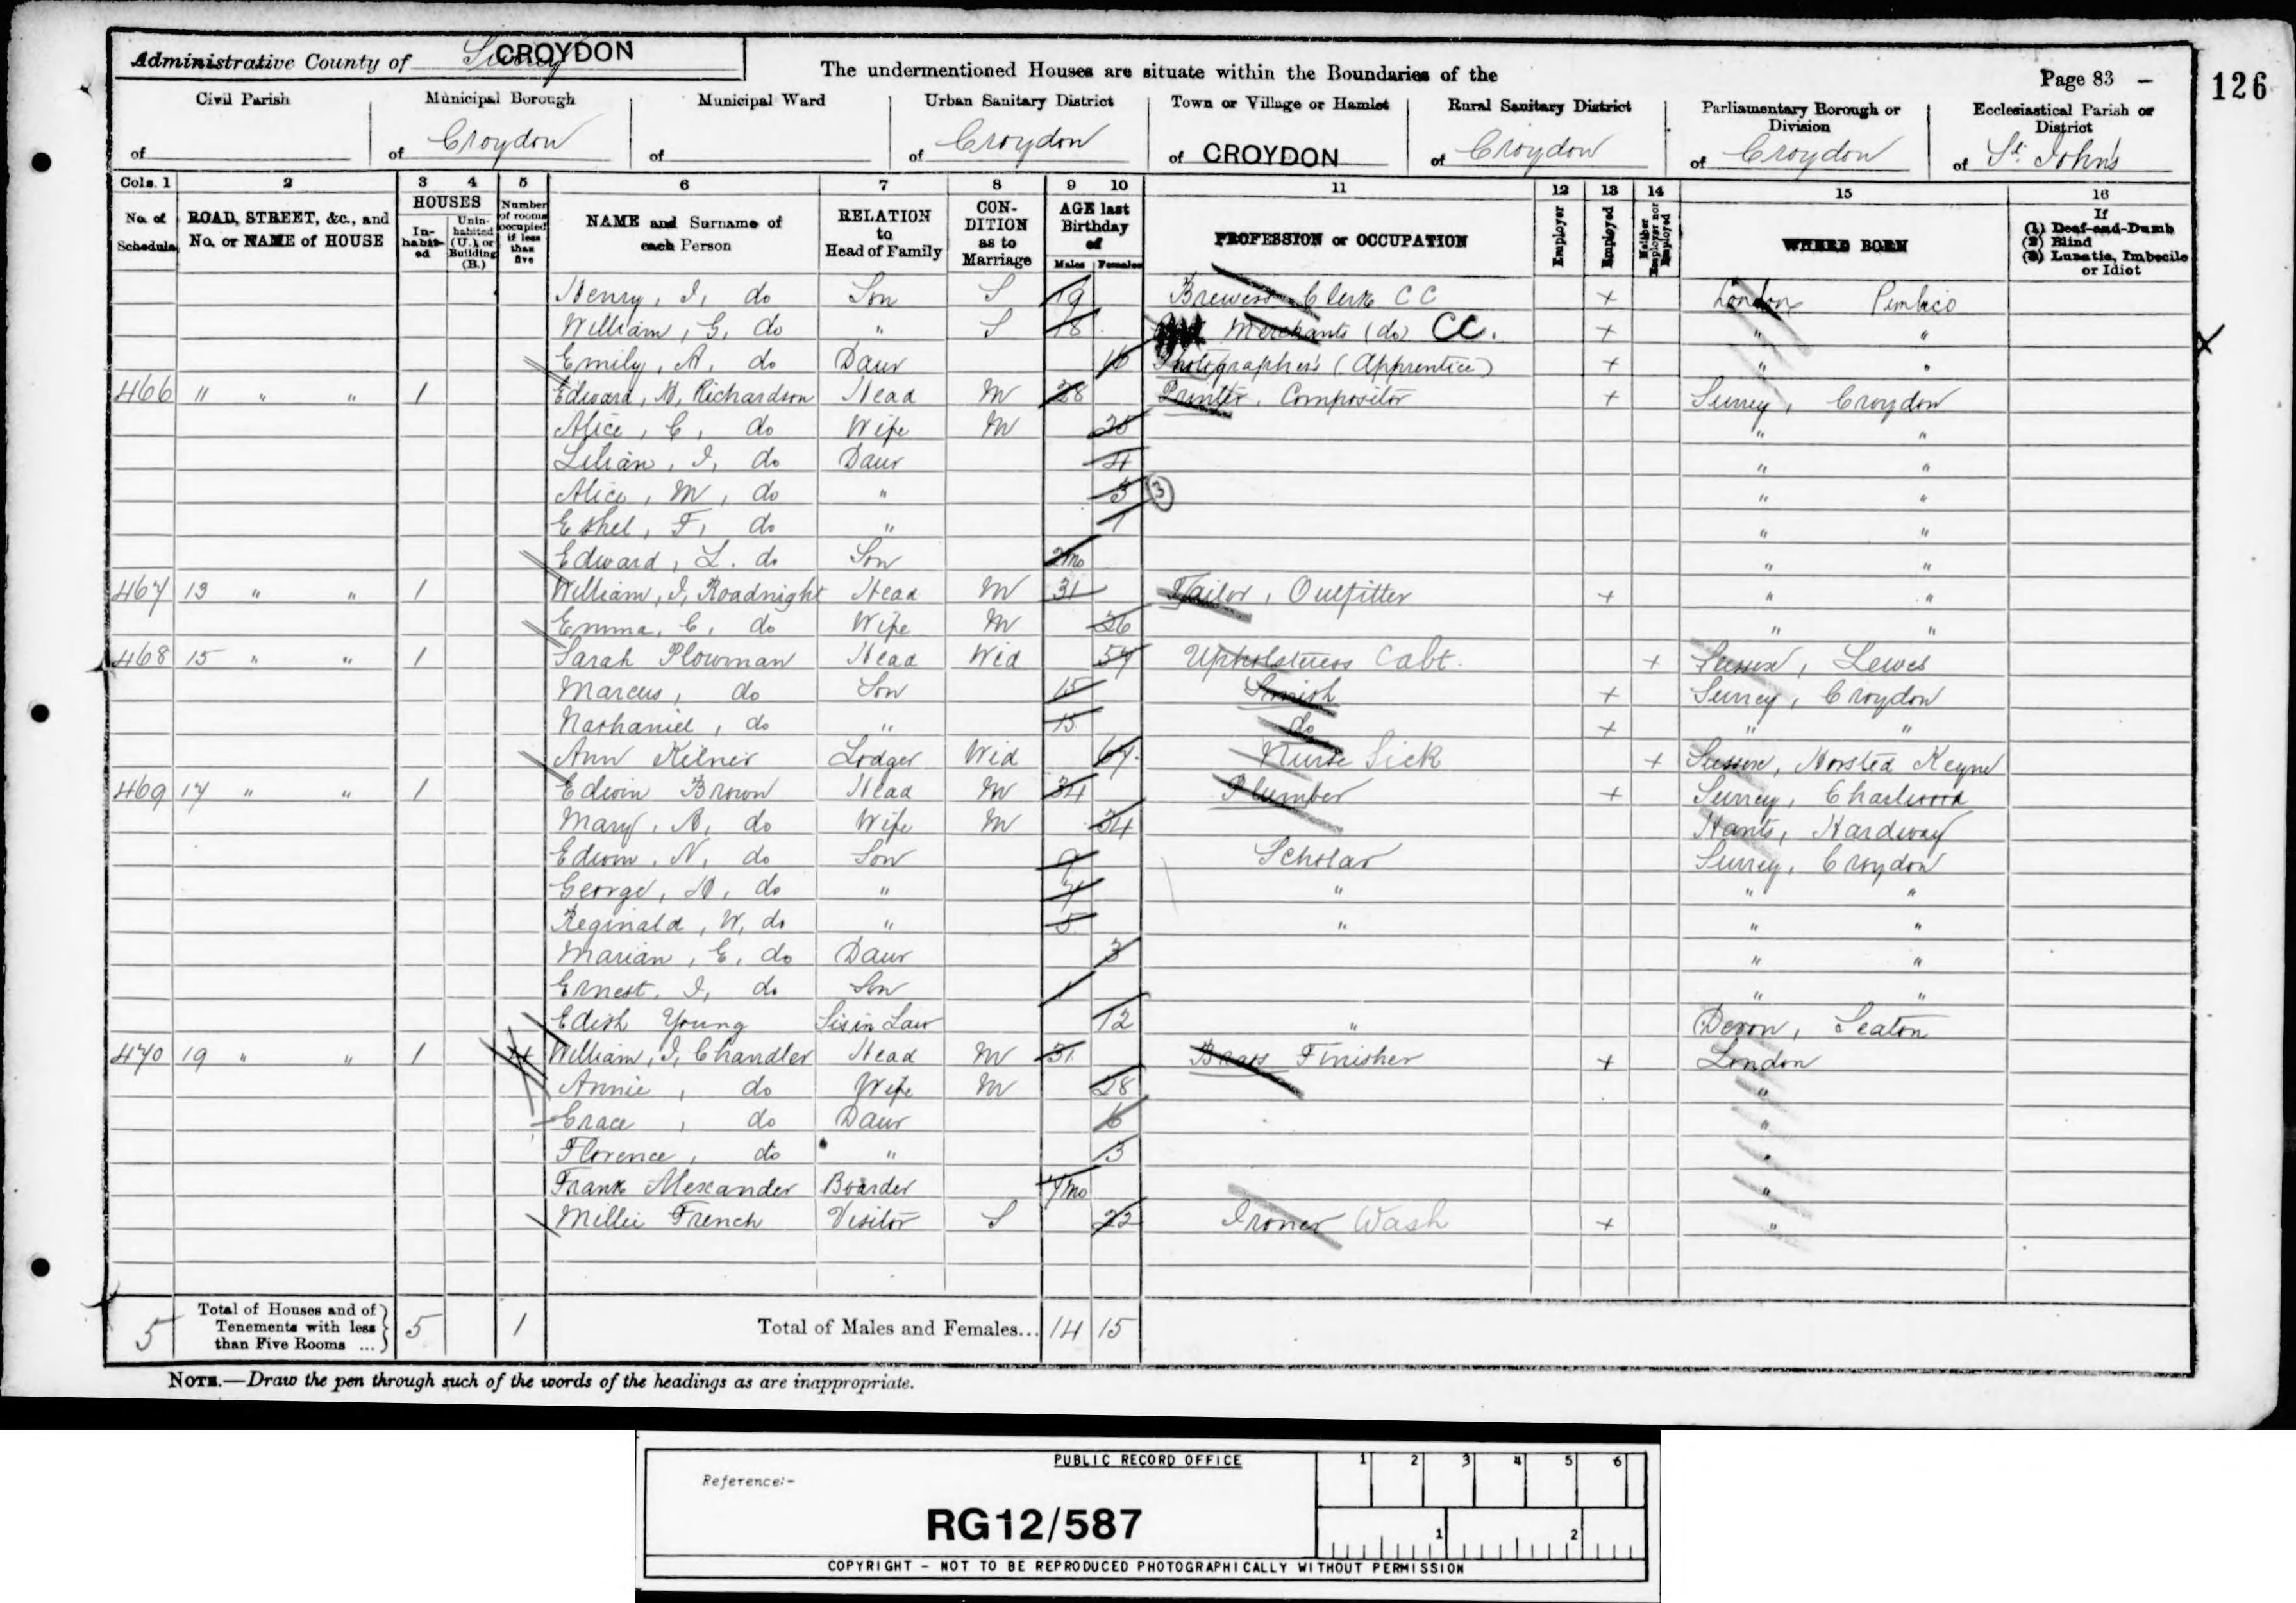 Administrative County of Surrey CROYDON
The undermentioned Houses are situate within the Boundaries of the
Page 83
126
Civil Parish Municipal Borough Municipal Ward Urban Sanitary District Town or Village or Hamlet Rural Sanitary District Parliamentary Borough or Division Ecclesiastical Parish or District
of of Croydon of of Croydon of CROYDON of Croydon of Croydon of St. John's
Cols. 1 2 3 4 5 6 7 8 9 10 11 12 13 14 15 16
No. of Schedule ROAD, STREET, &c., and No. or NAME of HOUSE HOUSES Inhabited Uninhabited (U.), or Building (B.) Number of rooms occupied if less than five NAME and Surname of each Person RELATION to Head of Family CONDITION as to Marriage AGE last Birthday of Males Females PROFESSION or OCCUPATION Employer Employed Neither Employer nor Employed WHERE BORN If (1) Deaf-and-Dumb (2) Blind (3) Lunatic, Imbecile or Idiot
Henry, J, do Son S 19 Brewers Clerk CC + London Pimlico
William, G, do " S 18 Merchants (do) CC. + " "
Emily, A, do Daur 16 Photographers (Apprentice) + " "
466 11 " " 1 Edward, H, Richardson Head M 28 Printer, Compositor + Surrey, Croydon
Alice, C, do Wife M " "
Lilian, I, do Daur 4 " "
Alice, M, do " 3 (3) " "
Ethel, F, do " 1 " "
Edward, L. do Son 2mo " "
467 13 " " 1 William, J, Roadnight Head M 31 Tailor, Outfitter + " "
Emma, C, do Wife M 26 " "
468 15 " " 1 Sarah Plowman Head Wid 57 Upholsteress Cabt. + Sussex, Lewes
Marcus, do Son 15 Smith + Surrey, Croydon
Nathaniel, do " 15 do + " "
Ann Kilner Lodger Wid 67 Nurse Sick + Sussex, Horsted Keyne
469 17 " " 1 Edwin Brown Head M 34 Plumber + Surrey, Charlwood
Mary, A, do Wife M 34 Hants, Hardway
Edwin, N, do Son 9 Scholar Surrey, Croydon
George, H, do " 7 " " "
Reginald, W, do " 5 " " "
Marian, E, do Daur 3 " "
Ernest, J, do Son 1 " "
Edith Young Sis in Law 12 " Devon, Seaton
470 19 " " 1 4 William, J, Chandler Head M 31 Brass Finisher + London
Annie, do Wife M 28 "
Grace, do Daur 6 "
Florence, do " 3 "
Frank Alexander Boarder 7mo "
Millie French Visitor S 22 Ironer Wash + "
5 Total of Houses and of Tenements with less than Five Rooms ... 5 1 Total of Males and Females... 14 15
NOTE.—Draw the pen through such of the words of the headings as are inappropriate.
PUBLIC RECORD OFFICE 1 2 3 4 5 6
Reference:-
RG12/587
1 2
COPYRIGHT - NOT TO BE REPRODUCED PHOTOGRAPHICALLY WITHOUT PERMISSION